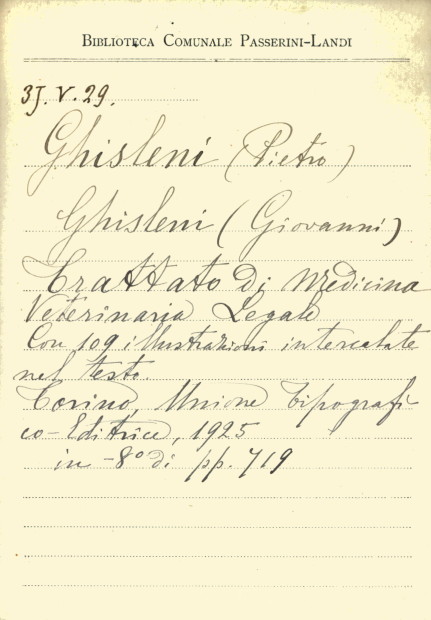 BIBLIOTECA COMUNALE PASSERINI-LANDI
3J. V. 29.
Ghisleni (Pietro)
Ghisleni (Giovanni)
Trattato di Medicina
Veterinaria Legale
Con 109 illustrazioni intercalate
nel testo.
Torino, Unione Tipografi
co-Editrice, 1925
in-8º di pp. 719